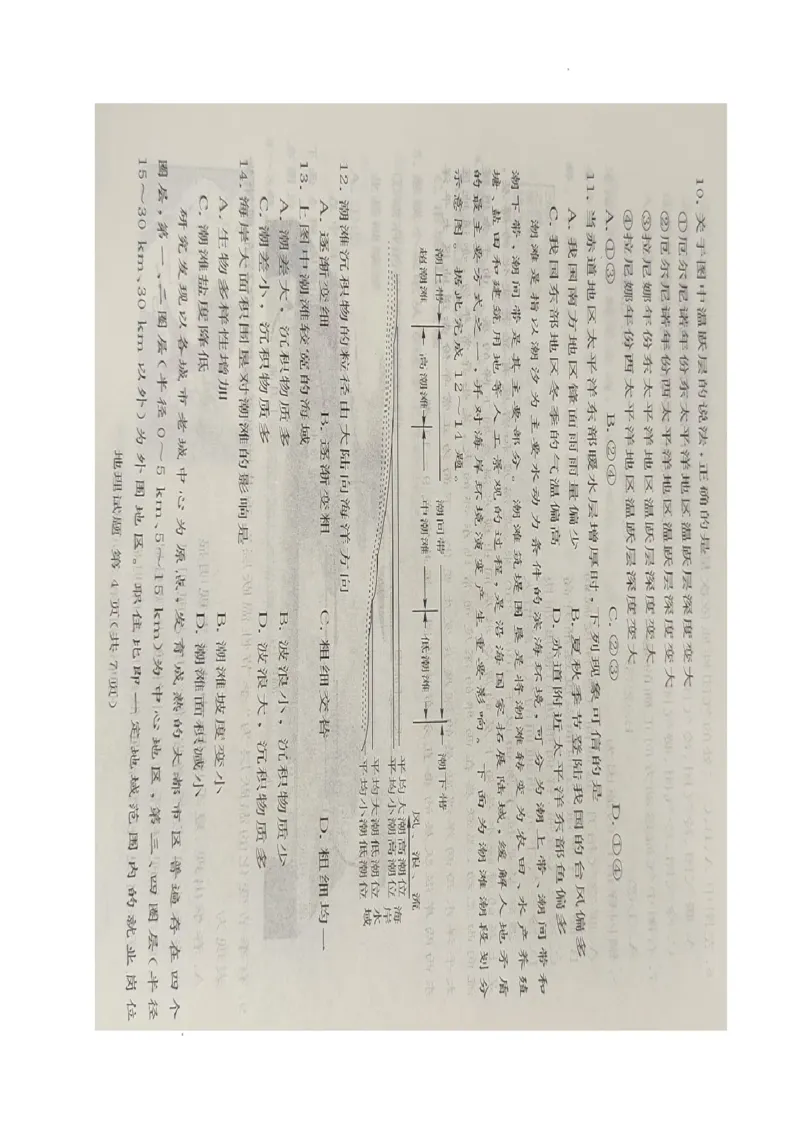 10. 关于图中温跃层的说法，正确的是
①厄尔尼诺年份东太平洋地区温跃层深度变大
②厄尔尼诺年份西太平洋地区温跃层深度变大
③拉尼娜年份东太平洋地区温跃层深度变大
④拉尼娜年份西太平洋地区温跃层深度变大
A. ①③ B. ②④ C. ②③ D. ①④
11. 当赤道地区太平洋东部暖水层增厚时，下列现象可信的是
A. 我国南方地区锋面雨雨量偏少 B. 夏秋季节登陆我国的台风偏多
C. 我国东部地区冬季的气温偏高 D. 赤道附近太平洋东部鱼偏多
潮滩是指以潮汐为主要水动力条件的滨海环境，可分为潮上带、潮间带和
潮下带，潮间带是其主要部分。潮滩筑堤围垦是将潮滩转变为农田、水产养殖
塘、盐田和建筑用地等人工景观的过程，是沿海国家拓展陆域，缓解人地矛盾
的最主要方式之一，并对海岸环境演变产生重要影响。下面为潮滩潮段划分
示意图。据此完成 12～14 题。
潮上带 潮间带 潮下带
超潮滩 高潮滩 中潮滩 低潮滩 风、浪、流
平均大潮高潮位
平均小潮高潮位
平均大潮低潮位
平均小潮低潮位
海岸水域
12. 潮滩沉积物的粒径由大陆向海洋方向
A. 逐渐变细 B. 逐渐变粗 C. 粗细交替 D. 粗细均一
13. 上图中潮滩较宽的海域
A. 潮差大，沉积物质多 B. 波浪小，沉积物质少
C. 潮差小，沉积物质多 D. 波浪大，沉积物质多
14. 海岸大面积围垦对潮滩的影响是
A. 生物多样性增加 B. 潮滩坡度变小
C. 潮滩盐度降低 D. 潮滩面积减小
研究发现以各城市老城中心为原点，发育成熟的大都市区普遍存在四个
圈层，第一、二圈层（半径 0～5 km、5～15 km）为中心地区，第三、四圈层（半径
15～30 km、30 km 以外）为外围地区。职住比即一定地域范围内的就业岗位
地理试题 第 4 页（共 7 页）